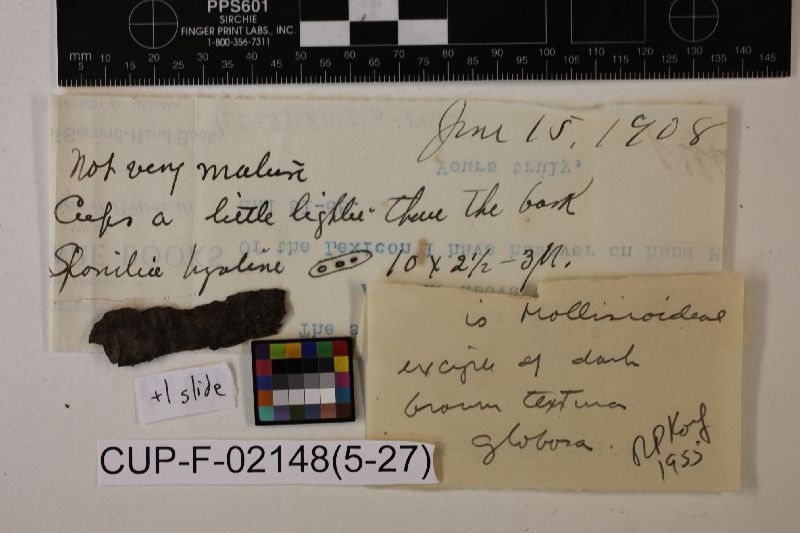 PPS601
SIRCHIE
FINGER PRINT LABS., INC.
1-800-356-7311
mm 5 10 15 20 25 30 35 40 45 50 55 60 65 70 75 80 85 90 95 100 105 110 115 120 125 130 135 140 145
June 15, 1908
Not very mature
Cups a little lighter than the bark
Sporidia hyaline 10 x 2½-3µ.
is Mollisioideae
exciple of dark
brown textura
globosa.
RP Korf
1955
+1 slide
CUP-F-02148(5-27)
of Second-Hand Books
Yours truly,
of the Lexicon I have however on hand
The s